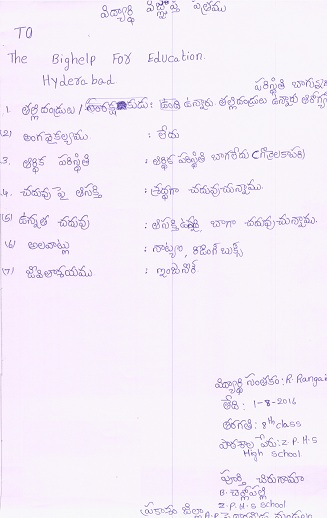 విద్యార్థి విజ్ఞప్తి పత్రము
TO
The Bighelp For Education.
Hyderabad
పరిస్థితి బాగున్న
1. తల్లిదండ్రులు / సంరక్షకుడు : ఉండి ఉన్నారు తల్లిదండ్రులు ఉన్నారు ఆరోగ్య
(2) అంగవైకల్యము : లేదు
3. ఆర్థిక పరిస్థితి : ఆర్థిక పరిస్థితి బాగలేదు (గొర్రెలకాపరి)
4. చదువు పై ఆసక్తి : శ్రద్ధగా చదువుచున్నాము.
(5) ఉన్నత చదువు : ఆసక్తి ఉంది బాగా చదువుచున్నాము.
(6) అలవాట్లు : నాట్యం, రీడింగ్ బుక్స్
(7) జీవితాశయము : ఇంజనీర్
విద్యార్థి సంతకం : R. Ranga
తేది : 1-8-2016
తరగతి : 8th class
పాఠశాల పేరు : Z.P.H.S
High School
పూర్తి చిరునామా
B.చెర్లోపల్లి
Z.P.H.S School
ప్రకాశం జిల్లా